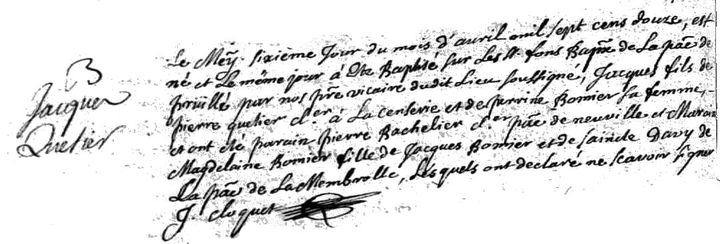 B
Jacques
Quetier
Le Mesme sixième jour du mois d'avril mil sept cens douze, est
né et le même jour a été Baptisé sur les st fons Bapm de La psse de
pruillé par nos pre vicaire dudit Lieu soussigné, Jacques fils de
pierre quetier clier à La Censerie et de perrine Bonier sa femme,
et ont été parain pierre Bachelier clier psse de neuville et Maraine
Magdelaine Bonier fille de Jacques Bonier et de saincte Davy de
La psse de La Membrolle, Lesquels ont declaré ne scavoir signer
J. cloquet